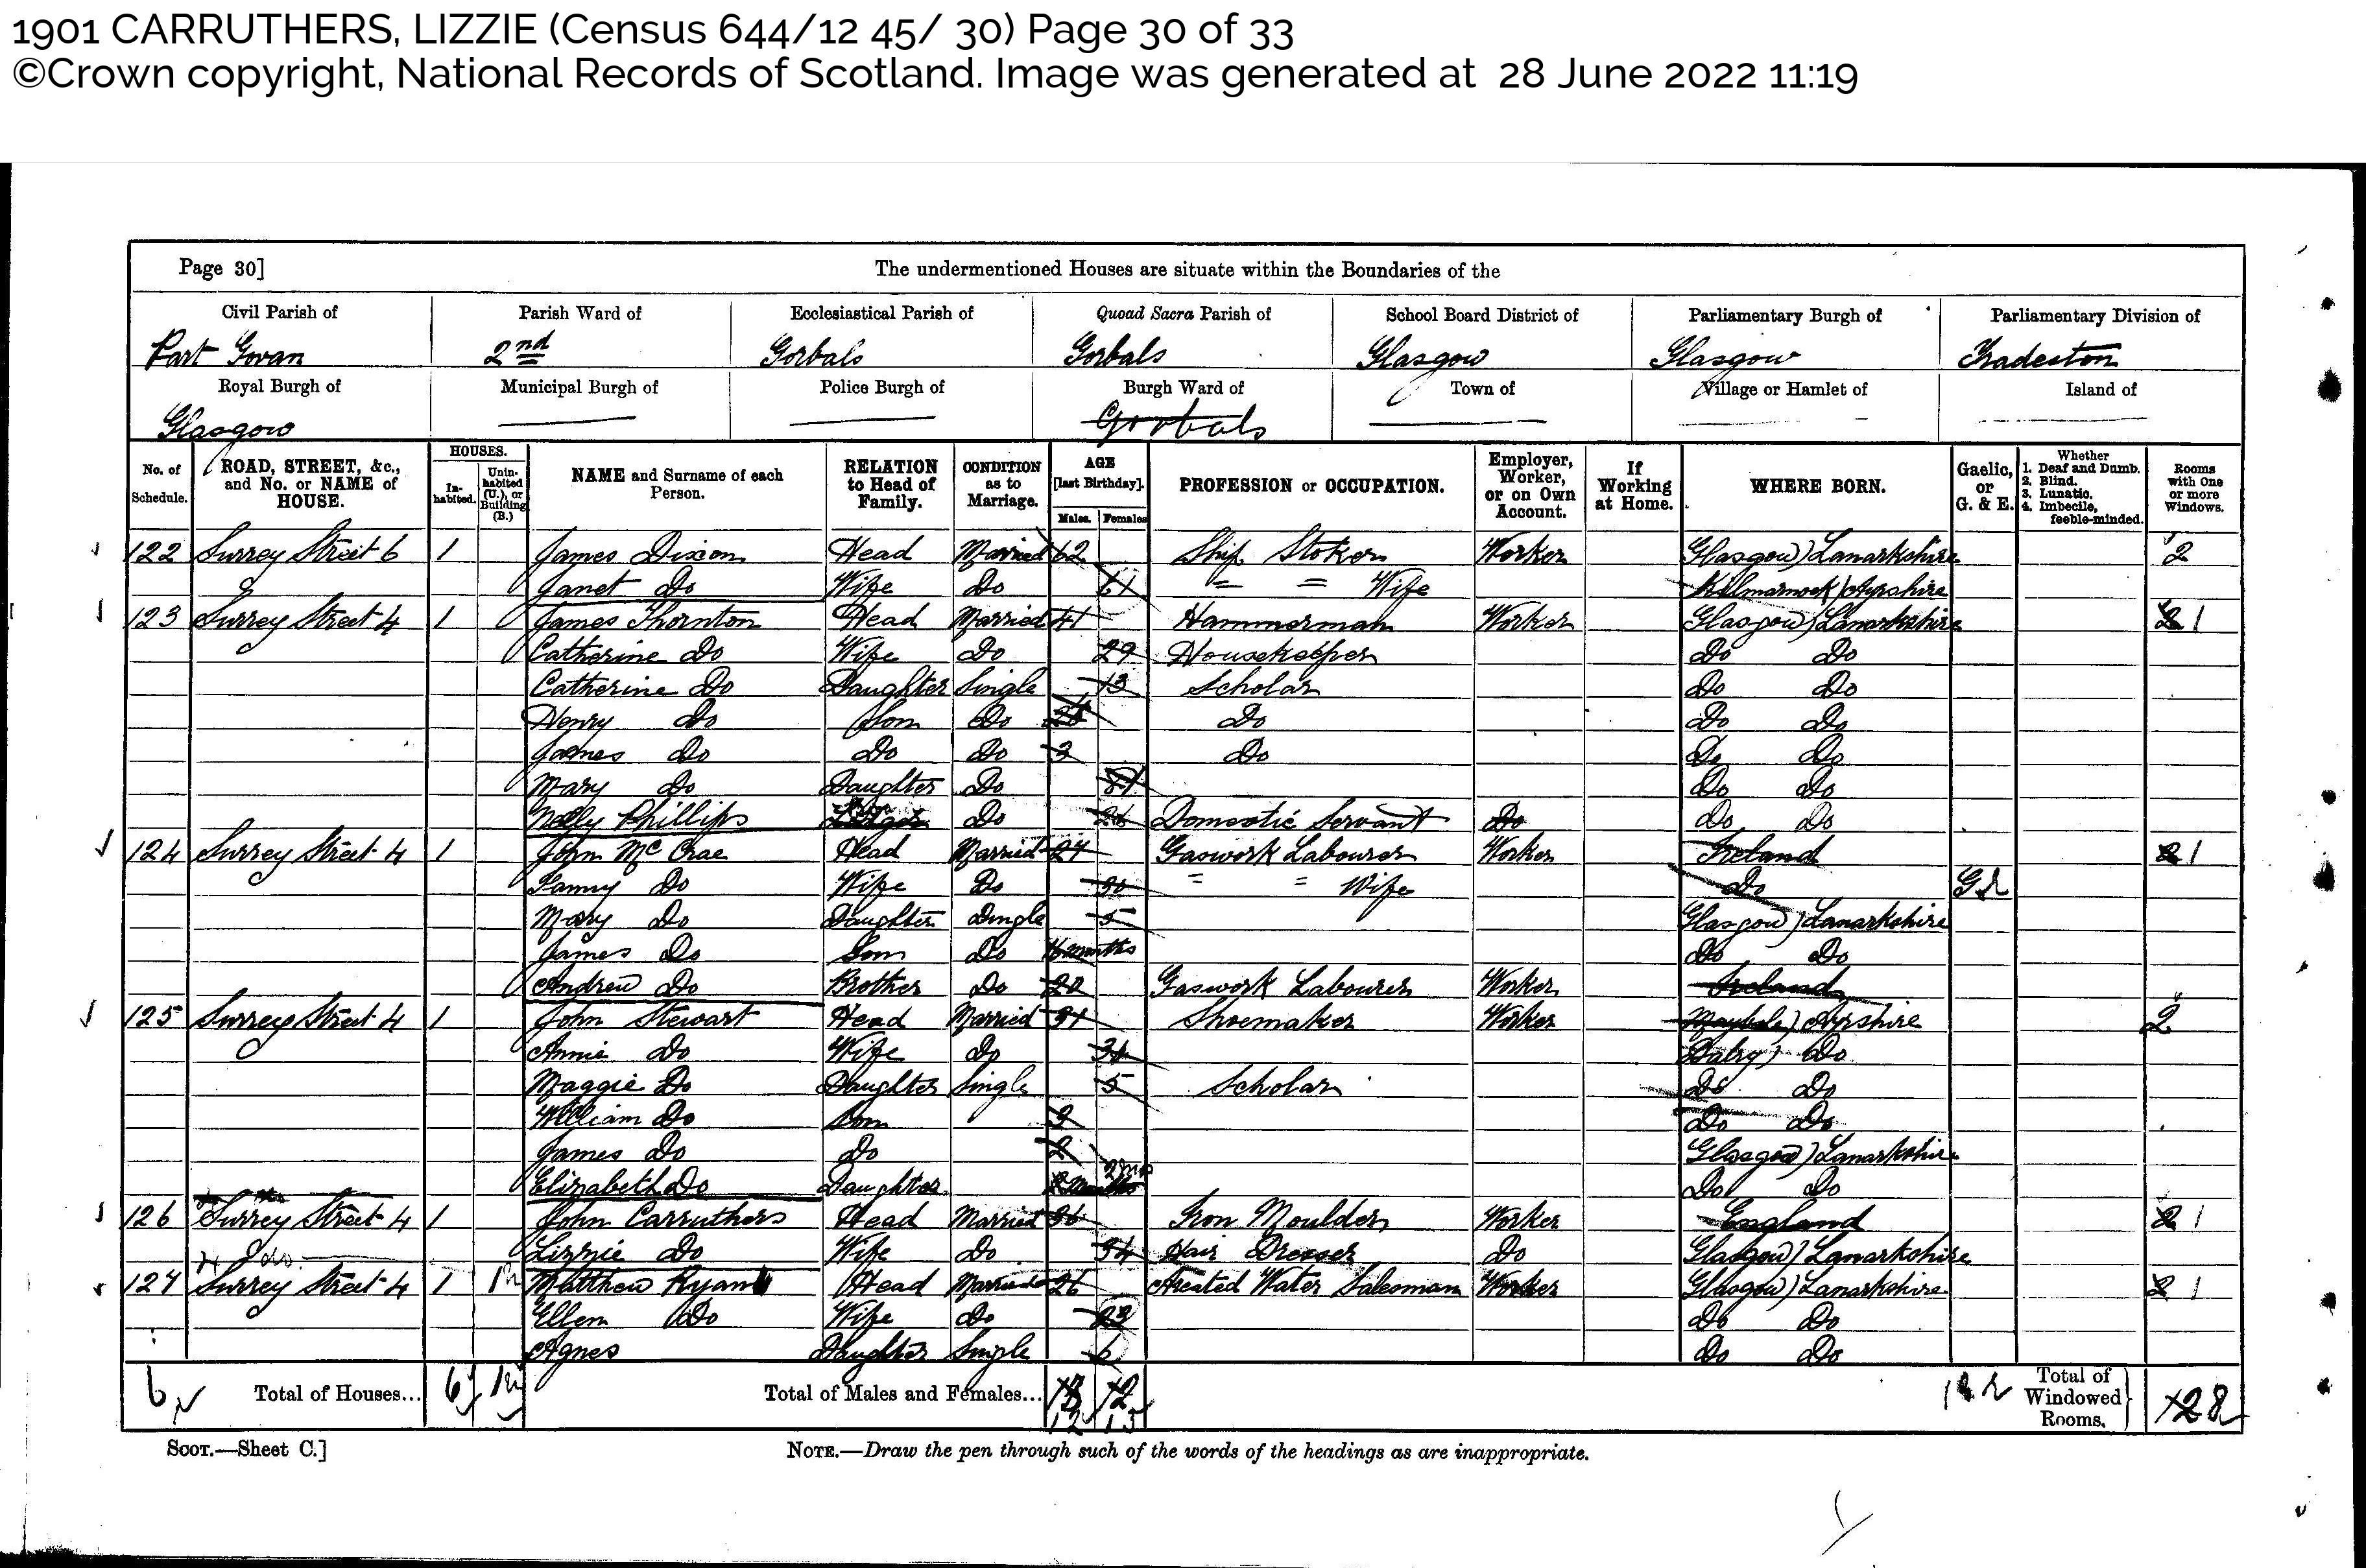 1901 CARRUTHERS, LIZZIE (Census 644/12 45/ 30) Page 30 of 33
©Crown copyright, National Records of Scotland. Image was generated at 28 June 2022 11:19
Page 30] The undermentioned Houses are situate within the Boundaries of the
Civil Parish of Parish Ward of Ecclesiastical Parish of Quoad Sacra Parish of School Board District of Parliamentary Burgh of Parliamentary Division of
Part Govan 2nd Gorbals Gorbals Glasgow Glasgow Tradeston
Royal Burgh of Municipal Burgh of Police Burgh of Burgh Ward of Town of Village or Hamlet of Island of
Glasgow Gorbals
No. of Schedule. ROAD, STREET, &c., and No. or NAME of HOUSE. HOUSES. Inhabited. Uninhabited (U.), or Building (B.) NAME and Surname of each Person. RELATION to Head of Family. CONDITION as to Marriage. AGE [last Birthday]. Males. Females PROFESSION or OCCUPATION. Employer, Worker, or on Own Account. If Working at Home. WHERE BORN. Gaelic, or G. & E. Whether 1. Deaf and Dumb. 2. Blind. 3. Lunatic. 4. Imbecile, feeble-minded. Rooms with One or more Windows.
122 Surrey Street 6 1 James Dixon Head Married 62 Ship Stoker Worker Glasgow) Lanarkshire 2
Janet Do Wife Do 61 = = Wife Kilmarnock) Ayrshire
123 Surrey Street 4 1 James Thornton Head Married 41 Hammerman Worker Glasgow) Lanarkshire 2 1
Catherine Do Wife Do 29 Housekeeper Do Do
Catherine Do Daughter Single 13 Scholar Do Do
Henry Do Son Do Do Do Do
James Do Do Do 3 Do Do Do
Mary Do Daughter Do Do Do
Phillips Do 26 Domestic Servant Do Do Do
124 Surrey Street 4 1 John Mc Crae Head Married 27 Gaswork Labourer Worker Ireland 2 1
Fanny Do Wife Do 30 = = Wife Do G
Mary Do Daughter Single 5 Glasgow) Lanarkshire
James Do Son Do months Do Do
Andrew Do Brother Do 20 Gaswork Labourer Worker Ireland
125 Surrey Street 4 1 John Stewart Head Married 31 Shoemaker Worker Maybole) Ayrshire 2
Annie Do Wife Do Dalry) Do
Maggie Do Daughter Single 5 Scholar Do Do
William Do Son 3 Do Do
James Do Do 2 Glasgow) Lanarkshire
Elizabeth Do Daughter 2 mos Do Do
126 Surrey Street 4 1 John Carruthers Head Married 36 Iron Moulder Worker England 2 1
Lizzie Do Wife Do 34 Hair Dresser Do Glasgow) Lanarkshire
127 Surrey Street 4 1 Matthew Ryan Head Married 26 Areated Water Salesman Worker Glasgow) Lanarkshire 2 1
Ellen Do Wife Do 23 Do Do
Agnes Daughter Single 6 Do Do
6 Total of Houses... 6 Total of Males and Females... 12 15 Total of Windowed Rooms. 8
SCOT.—Sheet C.] NOTE.—Draw the pen through such of the words of the headings as are inappropriate.